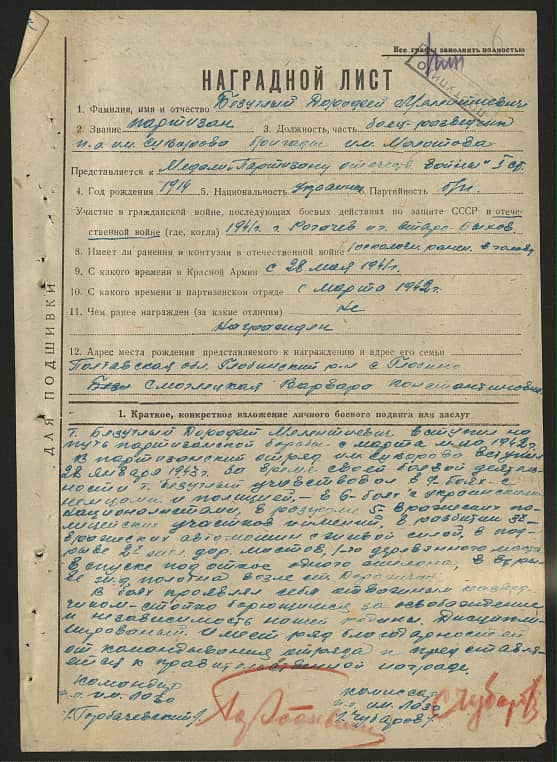 Все графы заполнять полностью
НАГРАДНОЙ ЛИСТ
1. Фамилия, имя и отчество Безуглый Дорофей Мелентиевич
2. Звание партизан 3. Должность, часть боец-разведчик
п.о им. Суворова бригады им. Молотова
Представляется к Медали "Партизану отечеств. войны" I ст.
4. Год рождения 1914 5. Национальность Украинец 6. Партийность б/п
Участие в гражданской войне, последующих боевых действиях по защите СССР и отече-
ственной войне (где, когда) 1941г. г. Рогачев ст. Старо-Быхов.
8. Имеет ли ранения и контузии в отечественной войне 1 осколочн. ранен. в голову
9. С какого времени в Красной Армии с 28 мая 1941г.
10. С какого времени в партизанском отряде с Марта 1942г.
11. Чем ранее награжден (за какие отличия) Не
награжден
12. Адрес места рождения представляемого к награждению и адрес его семьи
Полтавская обл. Глобинский р-н с.
Смотлецкая Варвара Константиновна
ДЛЯ ПОДШИВКИ
1. Краткое, конкретное изложение личного боевого подвига или заслуг
т. Безуглый Дорофей Мелентиевич вступил на
путь партизанской борьбы с марта м-ца 1942г.
В партизанский отряд им Суворова вступил
28 января 1943г. За время своей боевой деятель-
ности т. Безуглый участвовал в 9 боях - с
немцами и полицией, - в 6 боях с украинскими
националистами, в разгроме 5 вражеских по-
лицейских участков и имений. в разбитии 3х
вражеских автомашин с живой силой, в под-
рыве 2х дор. мостов, 1-го деревянного моста
в спуске под откос одного эшелона, в взры-
ве ж.д. полотна возле ст.
В боях проявлял себя
стойко борющимся за освобождение
и независимость нашей родины. Дисципли-
нированый. Имеет ряд благодарностей
от командывания отряда и представля-
ется к правительственной награде.
Командир комиссар
п.о. им. Лазо п.о им. Лазо
/Горбачевский/ /Чубаров/
СЧубаров